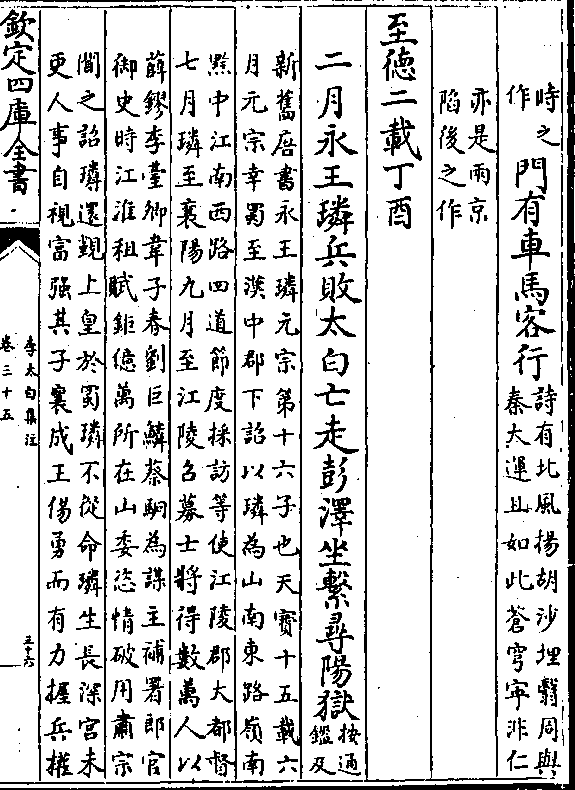 時之
作
門有車馬客行
詩有北風揚胡沙埋翳周與
秦大運且如此蒼穹寜非仁
亦是兩京
陷後之作
至徳二載丁酉
二月永王璘兵敗太白亡走彭澤坐繫尋陽獄
按通
鑑及
新舊唐書永王璘元宗第十六子也天寳十五載六
月元宗幸蜀至漢中郡下詔以璘為山南東路嶺南
黔中江南西路四道節度採訪等使江陵郡大都督
七月璘至襄陽九月至江陵召募士將得數萬人以
薛鏐李臺卿韋子春劉巨鱗蔡駉為謀主補署郎官
御史時江淮租賦鉅億萬所在山委恣情破用肅宗
聞之詔璘還覲上皇於蜀璘不從命璘生長深宮未
更人事自視富强其子襄成王偒勇而有力握兵權
欽定四庫全書
李太白集注
卷三十五
三十六